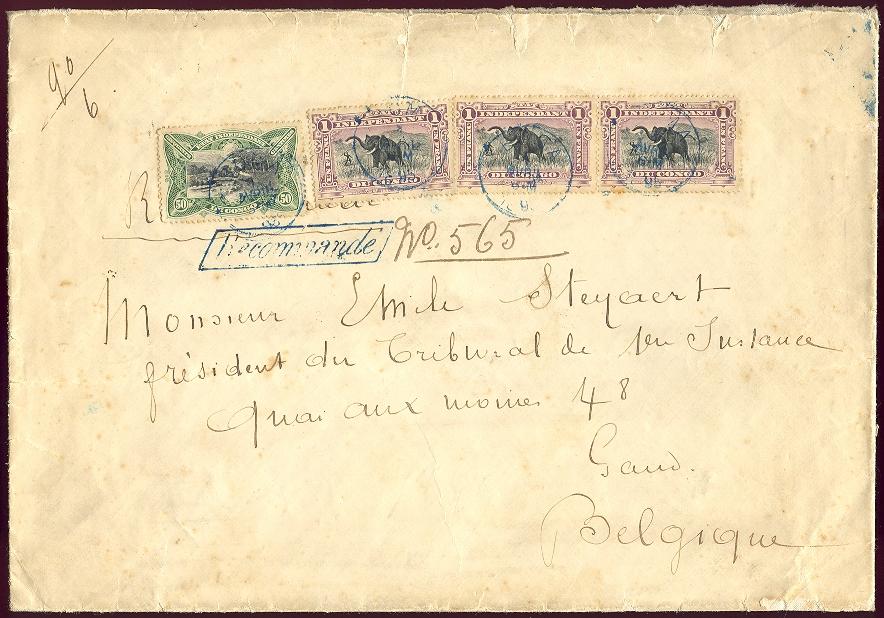 90
6
1 1 1 1 1 1
INDEPENDANT INDEPENDANT INDEPENDANT
UN FRANC UN FRANC
DU CONGO DU CONGO DU CONGO
50 CONGO 50
R
Recommandé No. 565
Monsieur Emile Steyaert
président du Tribunal de 1ère Instance
Quai aux moines 48
Gand.
Belgique